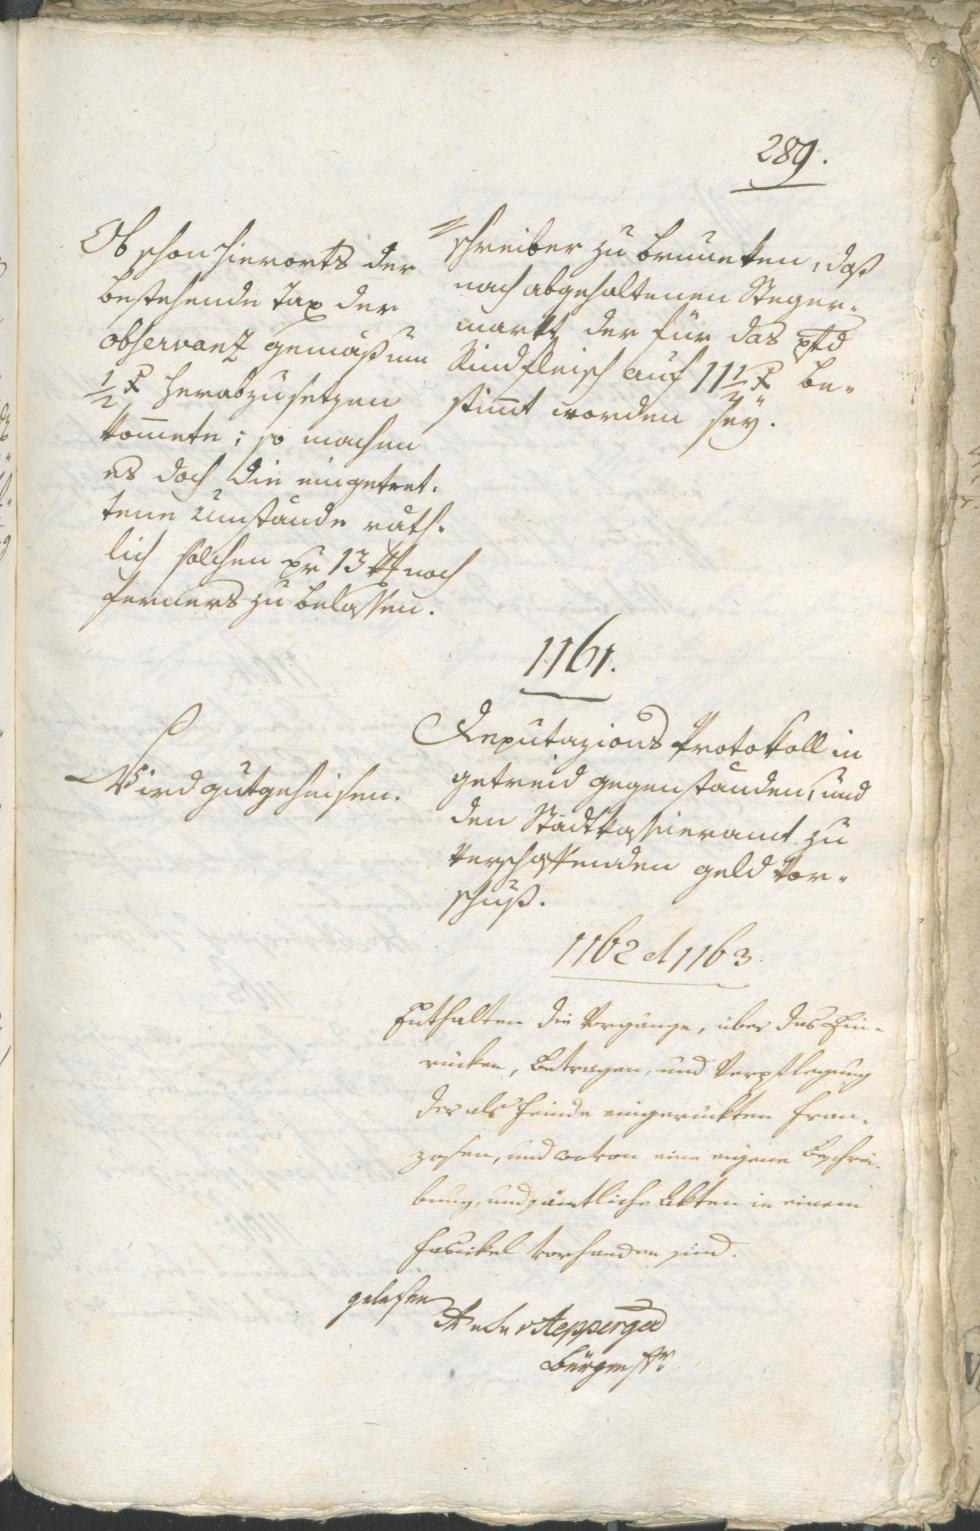 289.
Ob schon hierorts der
bestehende Tax der
observanz gemäß um
1/2 x herabzusetzen
kom̄ete; so machen
es doch die eingetret-
tene Umstände räth-
lich solchen pr 13 noch
ferners zu belassen.
schreiber zu Brunekken, daß
nach abgehaltenen Steger-
markt der für das Pfd
Rindfleisch auf 11 1/4 x be-
stim̄t worden seÿ.
1161.
Wird gutgeheisen.
Deputazions Protokoll in
getreid gegenständen, und
den Stadtkassieramt zu
verschaffenden geld Vor-
schuß.
1162 et 1163.
Enthalten die Vorgänge, über das Ein-
rücken, Betragen, und Verpflegung
der als Feinde eingerückten Fran-
zosen, und wovon eine eigene Beschrei-
bung, und sämtliche Akten in einem
Fascikel vorhanden sind.
gelesen
Bürgermstr